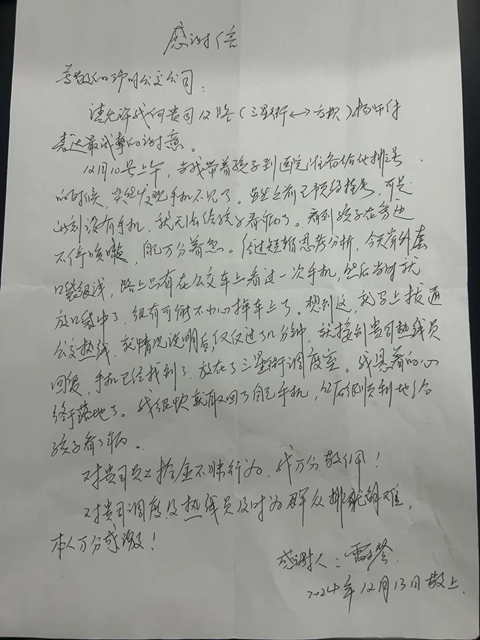 感谢信
尊敬的珍珠公交公司：
请允许我向贵司12路（三星街↔方坎）杨师傅
表达最诚挚的谢意。
12月10号上午，当我带着孩子到医院准备给他排号
的时候，突然发现手机不见了。虽然之前已预约挂号，可是
此刻没有手机，我无法给孩子看病了。看到孩子在旁边
不停咳嗽，自己万分着急。经过短暂思考分析，今天穿的外套
口袋很浅，路上只有在公交车上看过一次手机，然后当时就
放口袋中了，很有可能不小心掉车上了。想到这，就马上拨通
公交热线，就情况说明后，仅仅过了几分钟，就接到贵司热线员
回复，手机已经找到了，放在了三星街调度室。我悬着的心
终于落地了。我很快就取回了自己手机，然后很顺利地给
孩子看了病。
对贵司员工拾金不昧行为，我万分敬佩！
对贵司调度及热线员及时为群众排忧解难，
本人万分感激！
感谢人：
2024年12月13日敬上